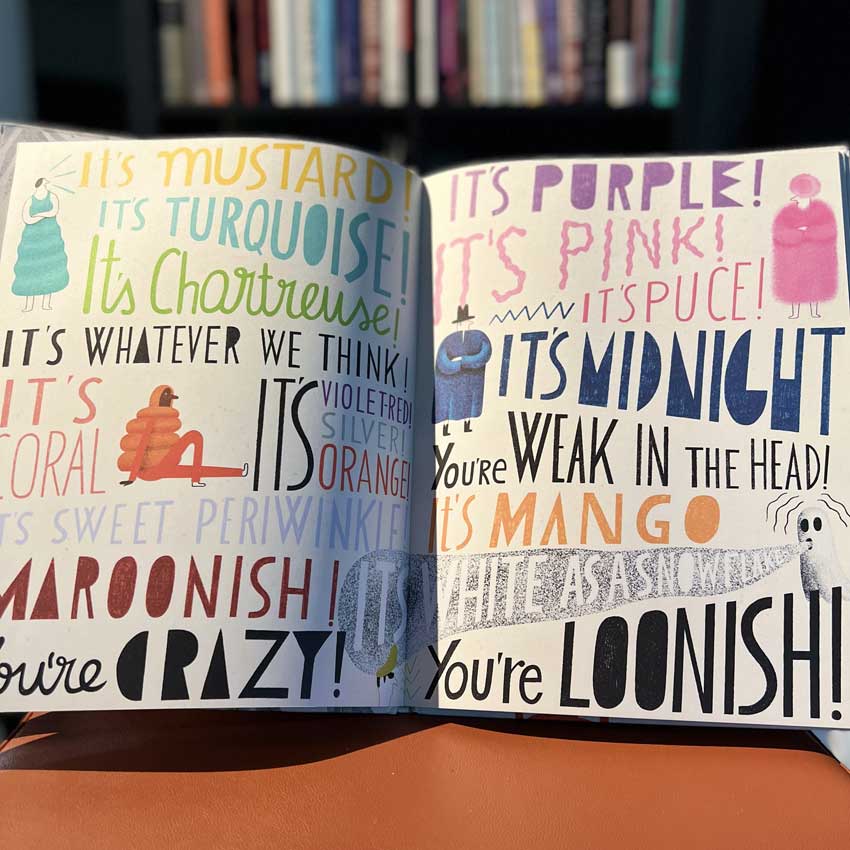 It's MUSTARD!
IT'S TURQUOISE!
It's Chartreuse!
IT'S WHATEVER WE THINK!
IT'S
CORAL
IT'S
VIOLET-RED!
SILVER!
ORANGE!
IT'S SWEET PERIWINKLE!
MAROONISH!
You're CRAZY!
IT'S PURPLE!
IT'S PINK!
IT'S PUCE!
IT'S MIDNIGHT
You're WEAK IN THE HEAD!
It's MANGO
IT'S WHITE AS A SNOWFLAKE
You're LOONISH!